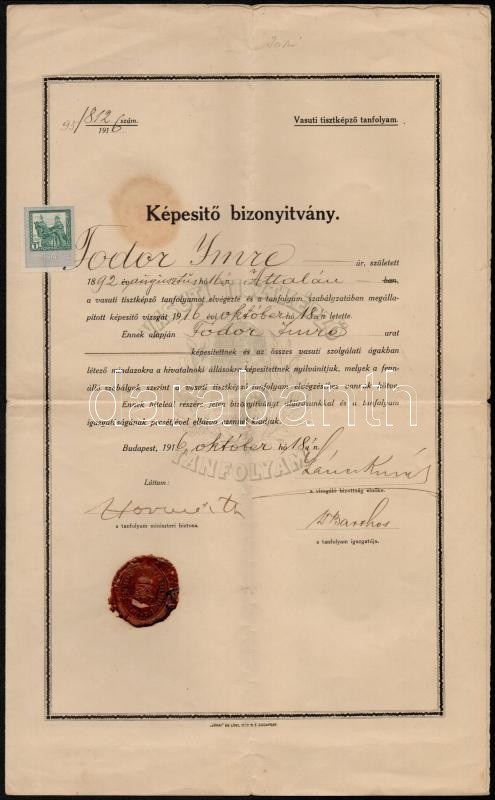 95/1812 szám.
1916
Vasuti tisztképző tanfolyam.
Képesitő bizonyitvány.
Todor Imre úr, született
1892 év augusztus hó Attalán ban,
a vasuti tisztképző tanfolyamot elvégezte és a tanfolyam szabályzatában megálla-
pitott képesitő vizsgát 1916 év október 18án letette.
Ennek alapján Todor Imre urat
képesitettnek és az összes vasuti szolgálati ágakban
létező mindazokra a hivatalnoki állásokra képesitettnek nyilvánitjuk, melyek a fenn-
álló szabályok szerint a vasuti tisztképző tanfolyam elvégzéséhez vannak kötve.
Ennek hiteléül részére jelen bizonyitványt aláirásunkkal és a tanfolyam
igazgatóságának pecsétjével ellátva ezennel kiadjuk.
Budapest, 1916 október hó 18án.
darabanth
TANFOLYAM
Láttam:
a vizsgáló bizottság elnöke.
a tanfolyam miniszteri biztosa.
Dr Barthos
a tanfolyam igazgatója.